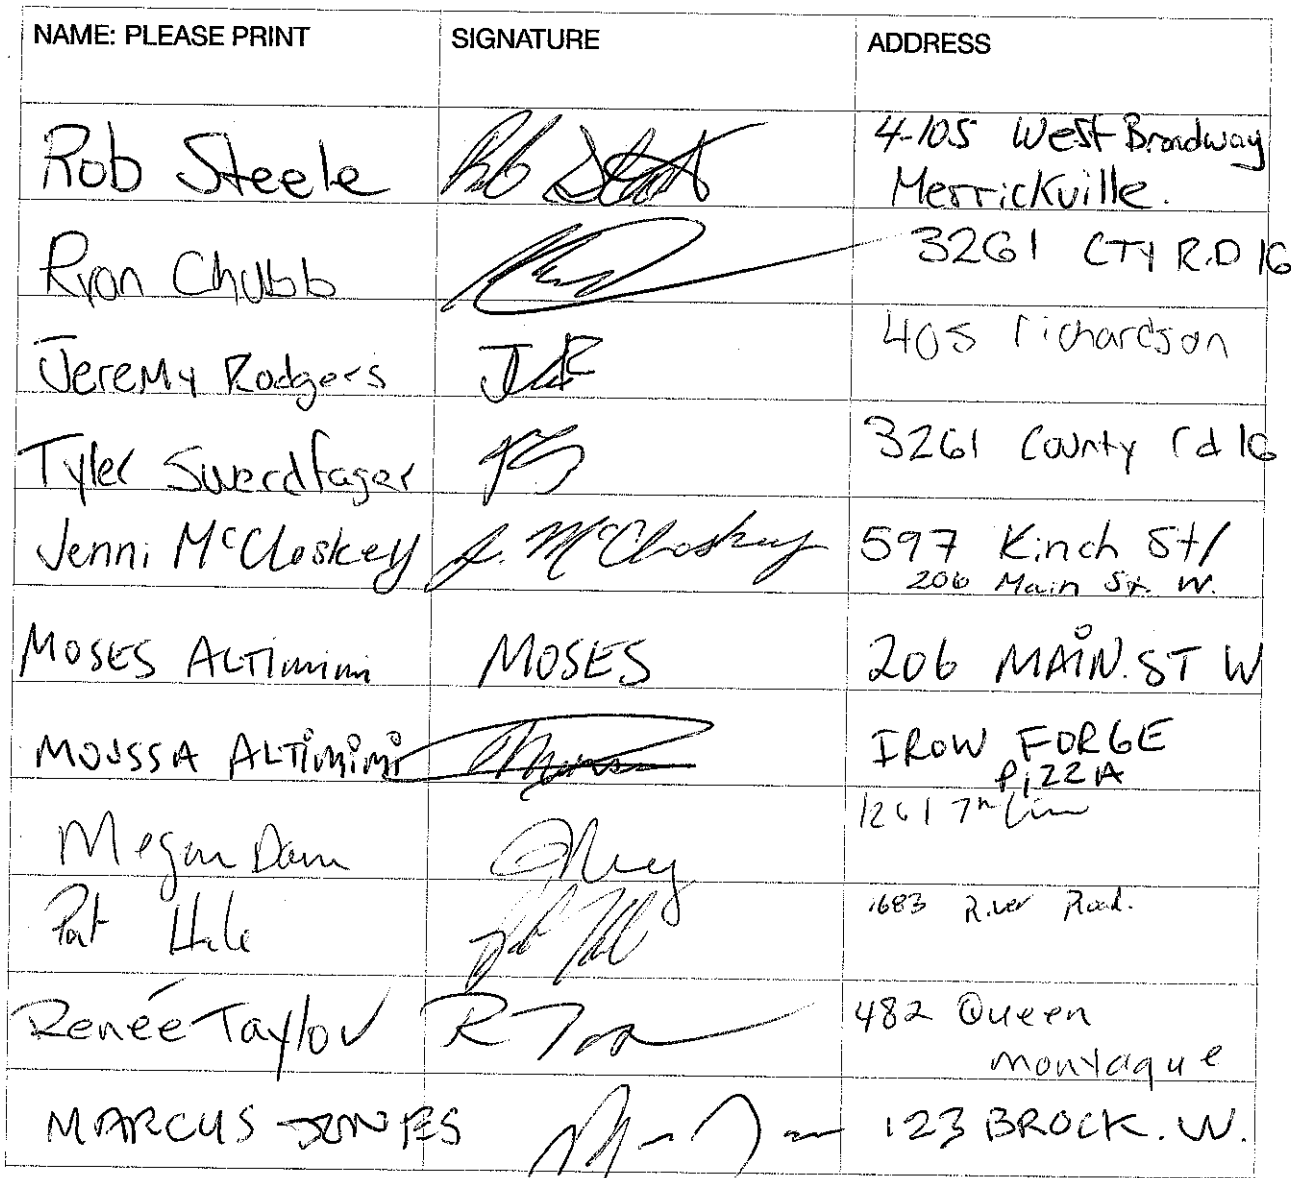 NAME: PLEASE PRINT SIGNATURE ADDRESS
Rob Steele Rob 4-105 West Broadway
Merrickville.
Ryan Chubb 3261 CTY R.D 16
Jeremy Rodgers 405 richardson
Tyler Swerdfager TS 3261 County rd 16
Jenni McCloskey J. McCloskey 597 Kinch St/
206 Main St. W.
MOSES ALTimimi MOSES 206 MAIN. ST W
MOUSSA ALTimimi IRON FORGE
PIZZA
Megan Dam 1261 7th Line
Pat Hale 1683 River Road.
Renée Taylor R 482 Queen
Montague
MARCUS JONES 123 BROCK. W.